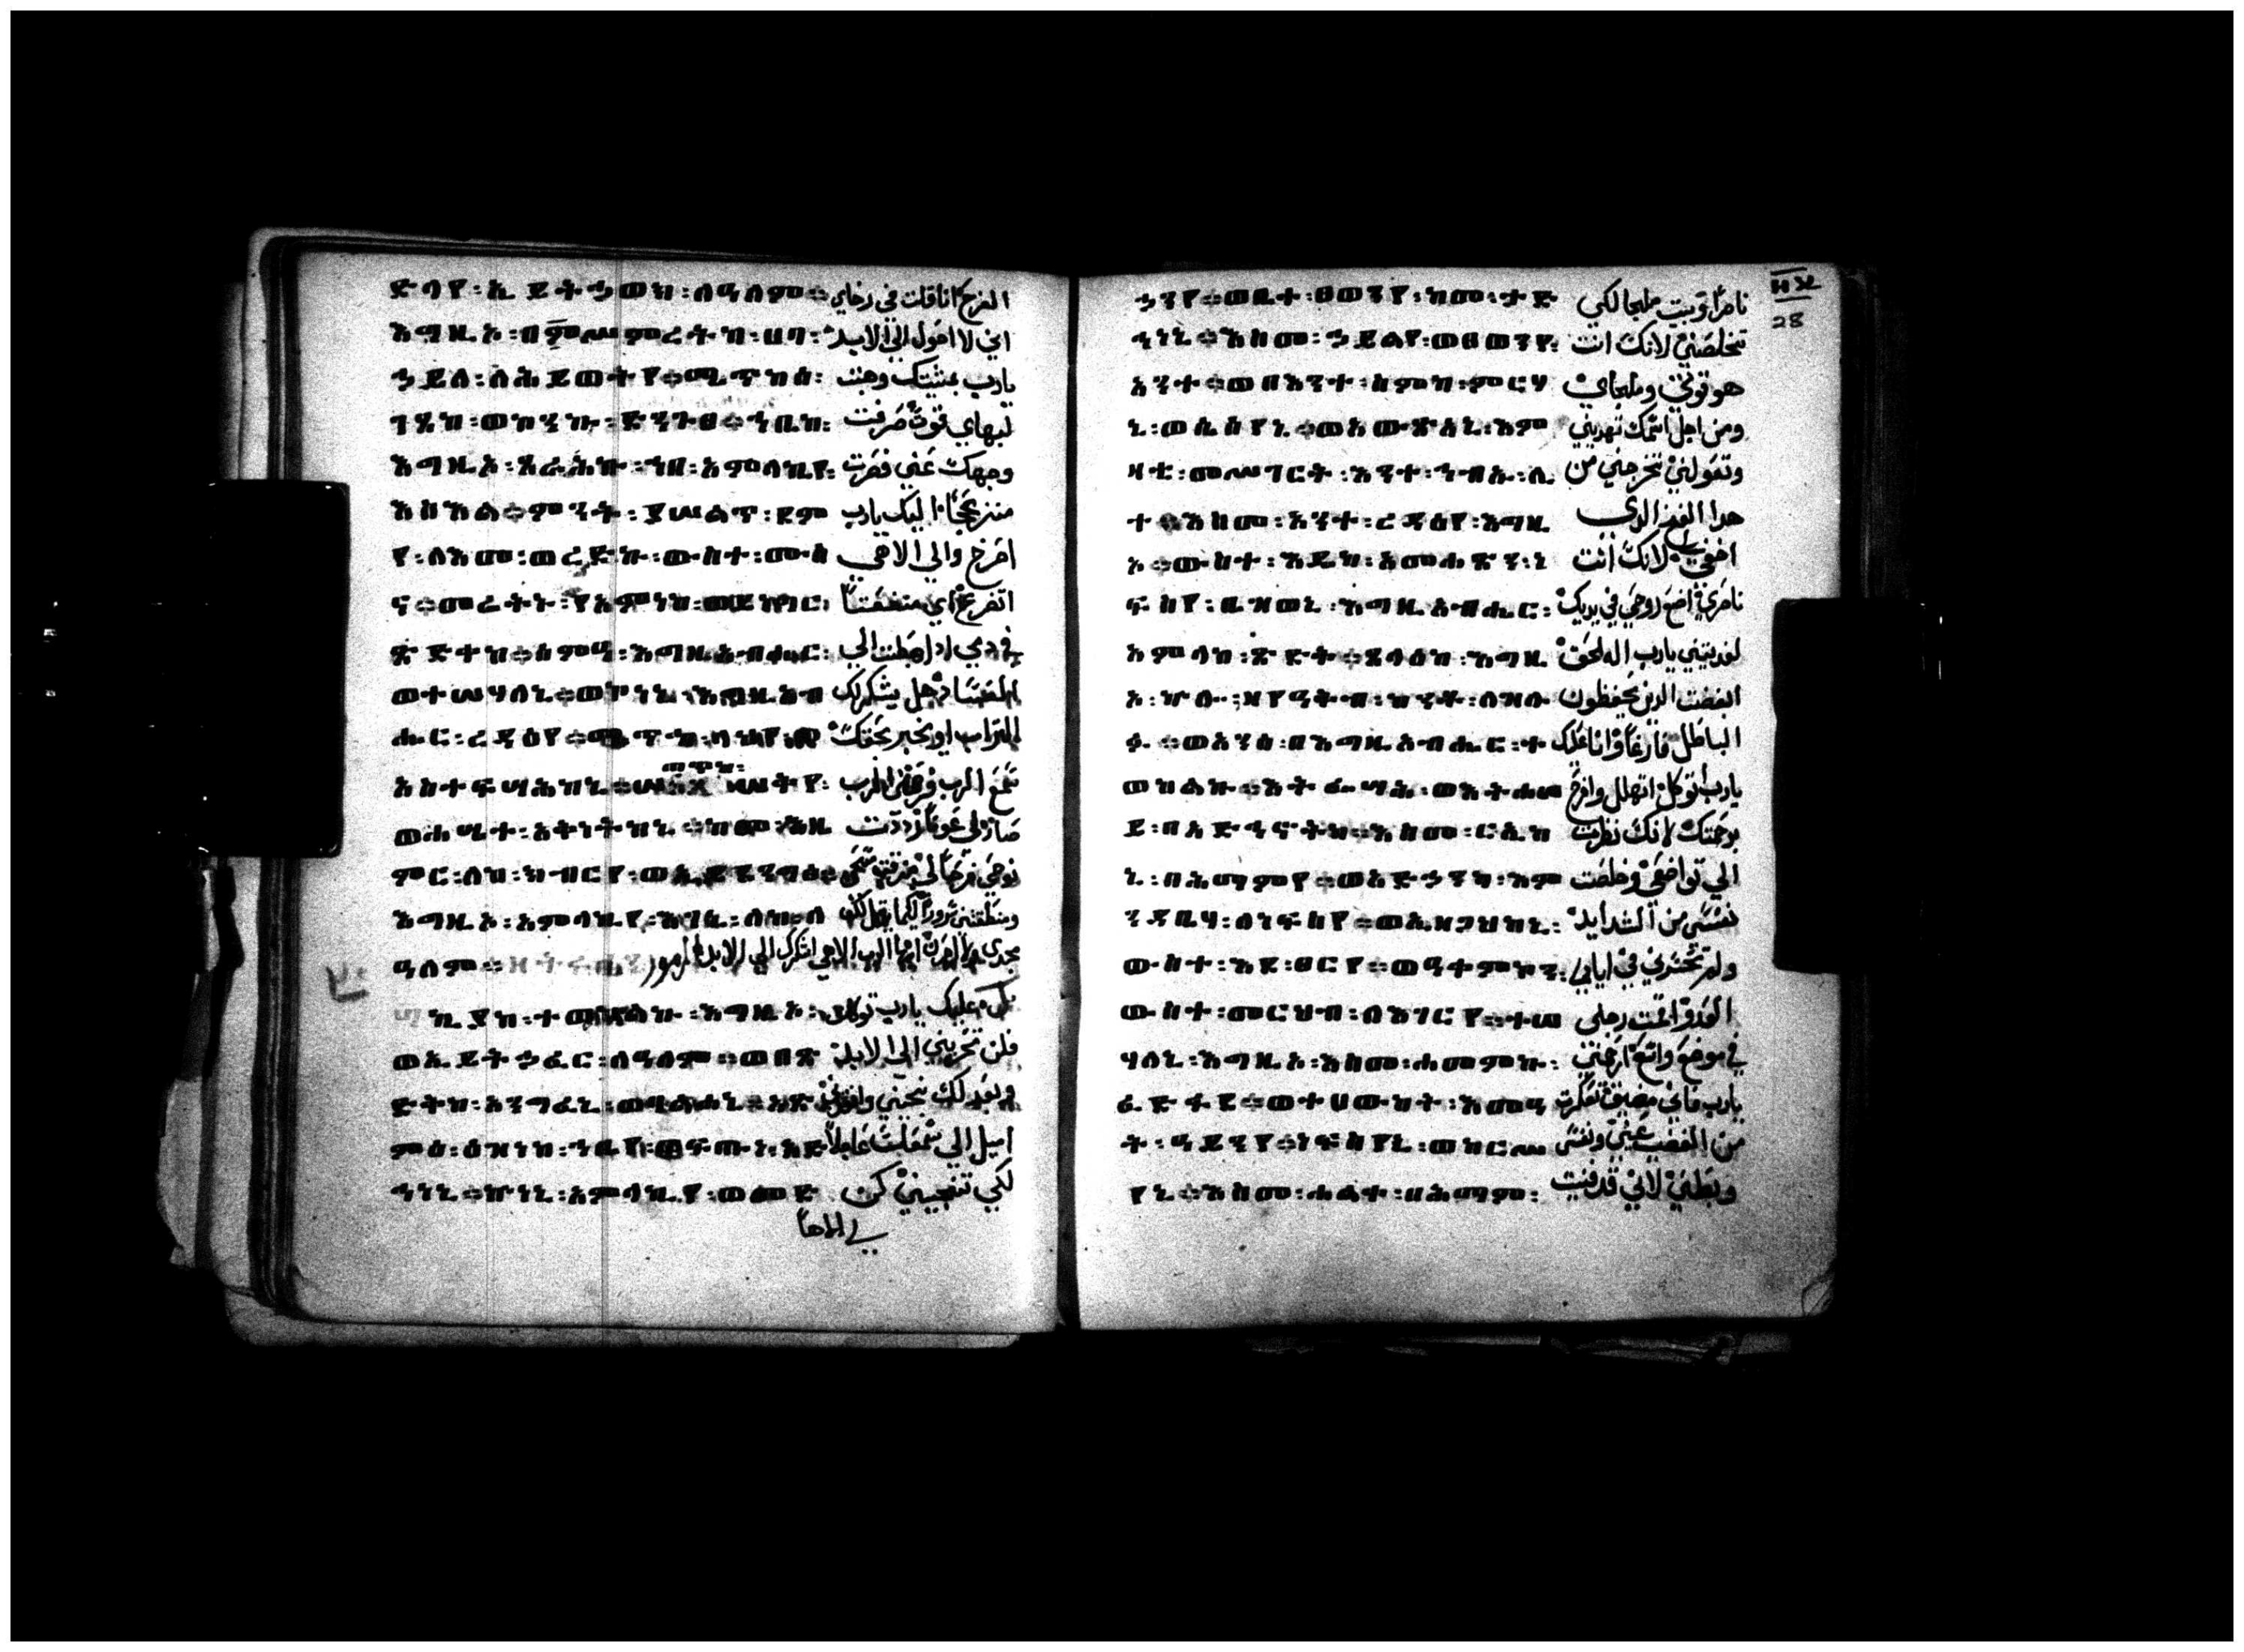 ድላየ፡ኢይትኃወክ፡ለዓለም። الفرح انا قلت في رخاي
እግዚኦ፡በምሥምረትከ፡ሀባ፡ اني لا احول الي الابد
ኃይለ፡ለሕይወትየ።ሜጥከሰ፡ يارب بمشيتك وهبت
ገጸከ፡ወኮንኩ፡ድንጉፀ።ኀቤከ፡ لبهاي قوة صرفت
እግዚኦ፡ጸራሕኩ፡ኀበ፡አምላኪየ፡ وجهك عني فصرت
እስእል።ምንት፡ይሤልጥ፡ደም منزعجا اليك يارب
የ፡ለእመ፡ወረድኩ፡ውስተ፡ሙስ اصرخ والي الاهي
ና።መሬትኑ፡የአምነከ፡ወይነግር፡ اتضرع اي منفعة
ጽድቀከ።ሰምዓ፡እግዚአብሔር፡ في دمي اذا هبطت الي
ወተሣሃለኒ።ወኮነኒ፡እግዚአብ الفساد هل يشكرك
ሔር፡ረዳኢየ።ሜጥከ፡ላህየ፡ التراب او يخبر بحقك
አስተፍሣሕከኒ። ሠቅየ፡ سمع الرب فرحمني الرب
ወሐሤተ፡አቅነትከኒ።ከመ፡ይዘ صار لي عونا رددت
ምር፡ለከ፡ክብርየ፡ወኢይደንግፅ። نوحي فرحا لي مزقت مسحي
እግዚኦ፡አምላኪየ፡እገኒ፡ለከ፡ለ ومنطقتني سرورا لكيما يرتل لك
ዓለም። مجدي ايها الرب الاهي اشكرك الي الابد المزمور
ኪያከ፡ተወከልኩ፡እግዚኦ፡ عليك يارب توكلت
ወኢይትኃፈር፡ለዓለም።ወበጽ فلن تخزيني الي الابد
ድቅከ፡አንግፈኒ፡ወባልሐኒ።አፅ وبعدلك نجني وانقذني
ምዕ፡ዕዝነከ፡ኀቤየ፡ወፍጡነ፡አድ اميل الي سمعك عاجلا
ኅነኒ።ኩነኒ፡አምላኪየ፡ወመድ لكي تنجيني كن
لي الاها
ኃንየ።ወቤተ፡ፀወንየ፡ከመ፡ታድ ناصرا وبيت ملجا لكي
ኅነኒ።እስመ፡ኃይልየ፡ወፀወንየ፡ تخلصني لانك انت
አንተ።ወበእንተ፡ስምከ፡ምርሃ هو قوتي وملجاي
ኒ፡ወሴስየኒ።ወአውፅአኒ፡እም ومن اجل اسمك تهديني
ዛቲ፡መሥገርት፡እንተ፡ኀብኡ፡ሊ وتعولني تخرجني من
ተ።እስመ፡አንተ፡ረዳኢየ፡እግዚ هدا الفخ الدي
ኦ።ውስተ፡እዴከ፡አመሐፅን፡ነ اخفي لي لانك انت
ፍስየ፡ቤዘወኒ፡እግዚአብሔር፡ ناصري اضع روحي في يديك
አምላከ፡ጽድቅ።ጸላዕከ፡እግዚ لفديتني يارب اله الحق
ኦ፡ኵሎ፡እለ፡የዓቅቡ፡ከንቶ፡ለዝሉ ابغضت الدين يحفظون
ፉ።ወአንሰ፡በእግዚአብሔር፡ተ الباطل فارغا وانا عليك
ወከልኩ።እትፌሣሕ፡ወእትሐሠ يارب اتوكل اتهلل وافرح
ይ፡በአድኅኖትከ።እስመ፡ርኢከ برحمتك لانك نظرت
ኒ፡በሕማምየ።ወአድኃንካ፡እም الي تواضعي وخلصت
ንዳቤሃ፡ለነፍስየ።ወኢዘጋሕከኒ፡ نفسي من الشدايد
ውስተ፡እደ፡ፀርየ።ወዓቀምኮን፡ ولم تحصرني في ايادي
ውስተ፡መርሕብ፡ለእገርየ።ተሣ العدو اقمت رجلي
ሃለኒ፡እግዚኦ፡እስመ፡ሐመምኩ፡ في موضع واسع ارحمني
ፈድፋደ።ወተሀውከት፡እመዓ يارب فاني مضيق تعكرت
ት፡ዓይንየ።ነፍስየኒ፡ወከርሥ من الغضب عيني ونفسي
የኒ።እስመ፡ሐልቀ፡በሕማም፡ وبطني لاني قد فنيت
28